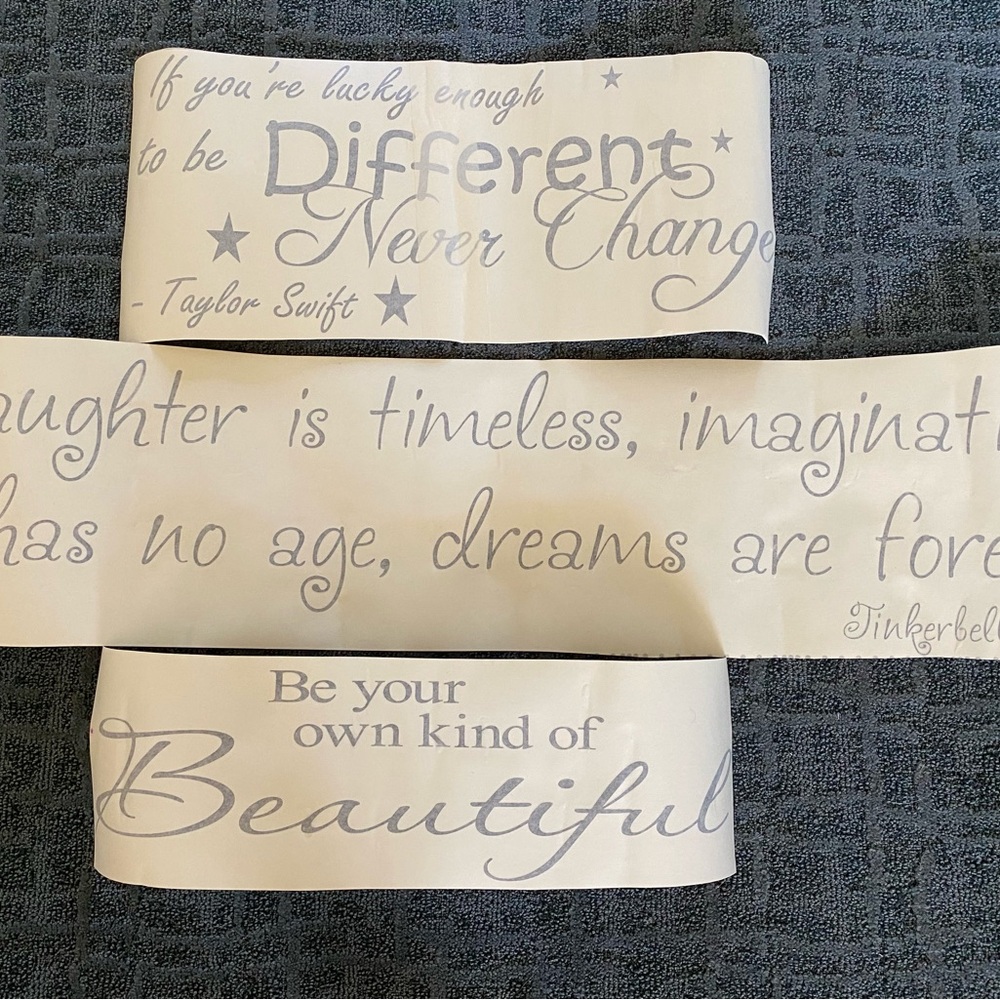 If you're lucky enough
to be Different
Never Change
- Taylor Swift
aughter is timeless, imaginati
has no age, dreams are fore
Tinkerbell
Be your
own kind of
Beautiful